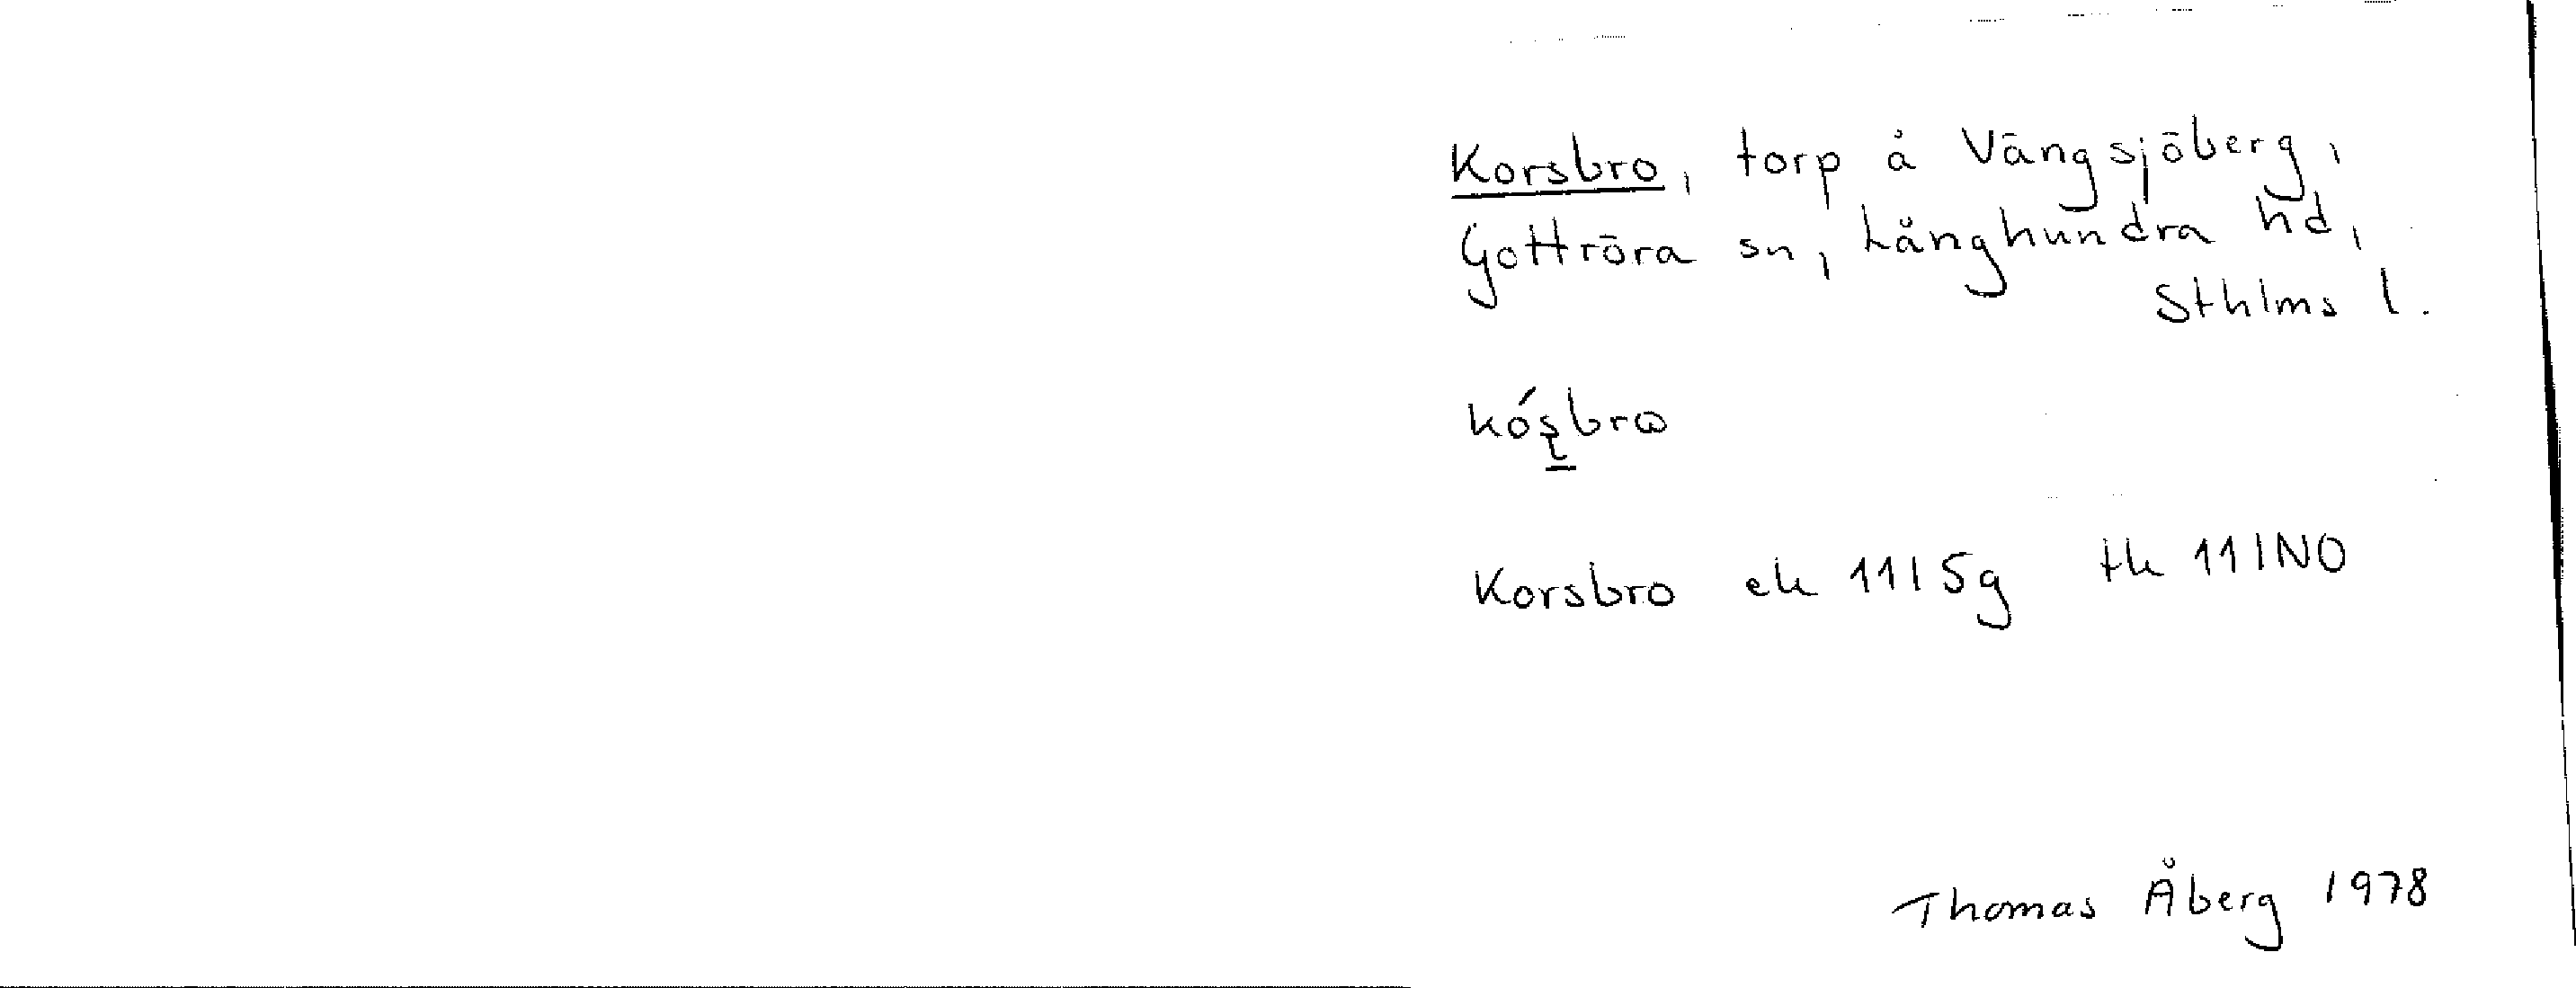 Korsbro, torp å Vängsjöberg,
Gottröra sn, Långhundra hd,
Sthlms l.
kóʂ̲brω
Korsbro ek 11I 5g tk 11INO
Thomas Åberg 1978